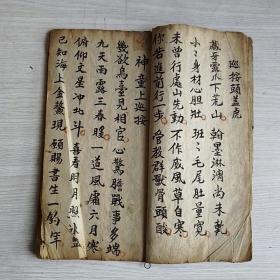 巡按頭蓋虎
藏牙露爪下荒山　翰墨淋漓尚未乾
小小身材心胆壯　班班毛尾肚量寬
未曾行處山先動　不作威風草自寒
你若進前行一步　管教群獸骨頭酸
神童上巡按
幾欲烏臺見相官　心驚膽戰事多端
九天雨露三春暖　一道風霜六月寒
俯仰文星冲北斗　喜看明月照
已知海上金鰲現　願賜書生一釣竿